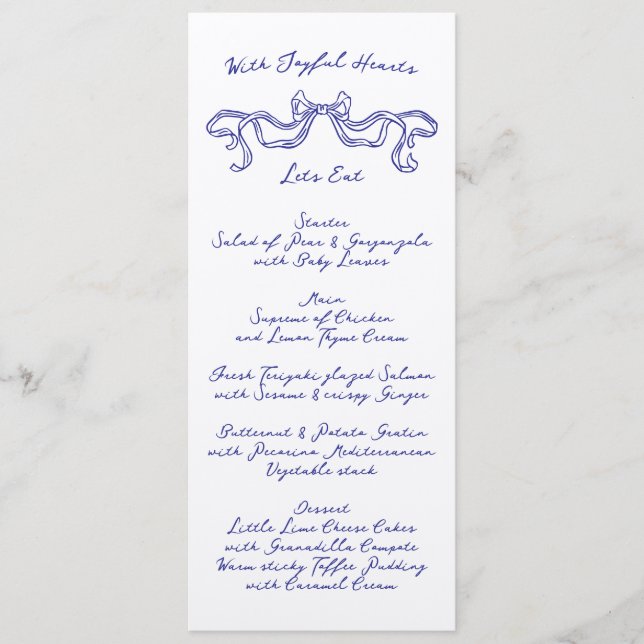 With Joyful Hearts
Lets Eat
Starter
Salad of Pear & Gorgonzola
with Baby Leaves
Main
Supreme of Chicken
and Lemon Thyme Cream
Fresh Teriyaki glazed Salmon
with Sesame & crispy Ginger
Butternut & Potato Gratin
with Pecorino Mediterranean
Vegetable stack
Dessert
Little Lime Cheese Cakes
with Granadilla Compote
Warm sticky Toffee Pudding
with Caramel Cream